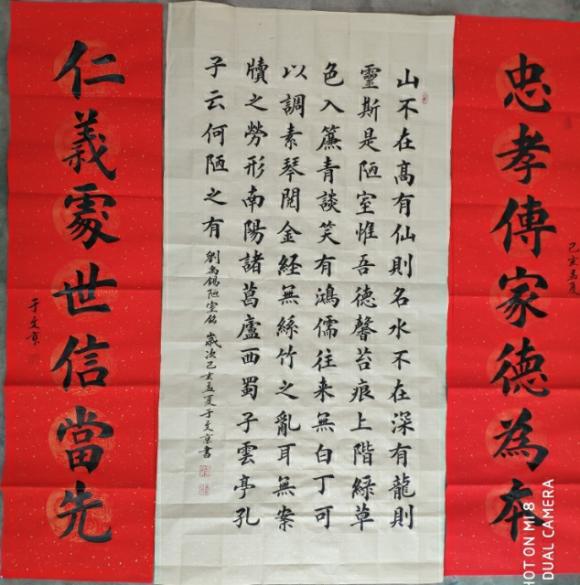 己亥孟夏
忠孝傳家德為本
山不在高有仙則名水不在深有龍則
靈斯是陋室惟吾德馨苔痕上階綠草
色入簾青談笑有鴻儒往来無白丁可
以調素琴閱金経無絲竹之亂耳無案
牘之勞形南陽諸葛廬西蜀子雲亭孔
子云何陋之有 劉禹錫陋室銘 歲次己亥孟夏于文京書
仁義處世信當先
于文京
SHOT ON MI 8
DUAL CAMERA